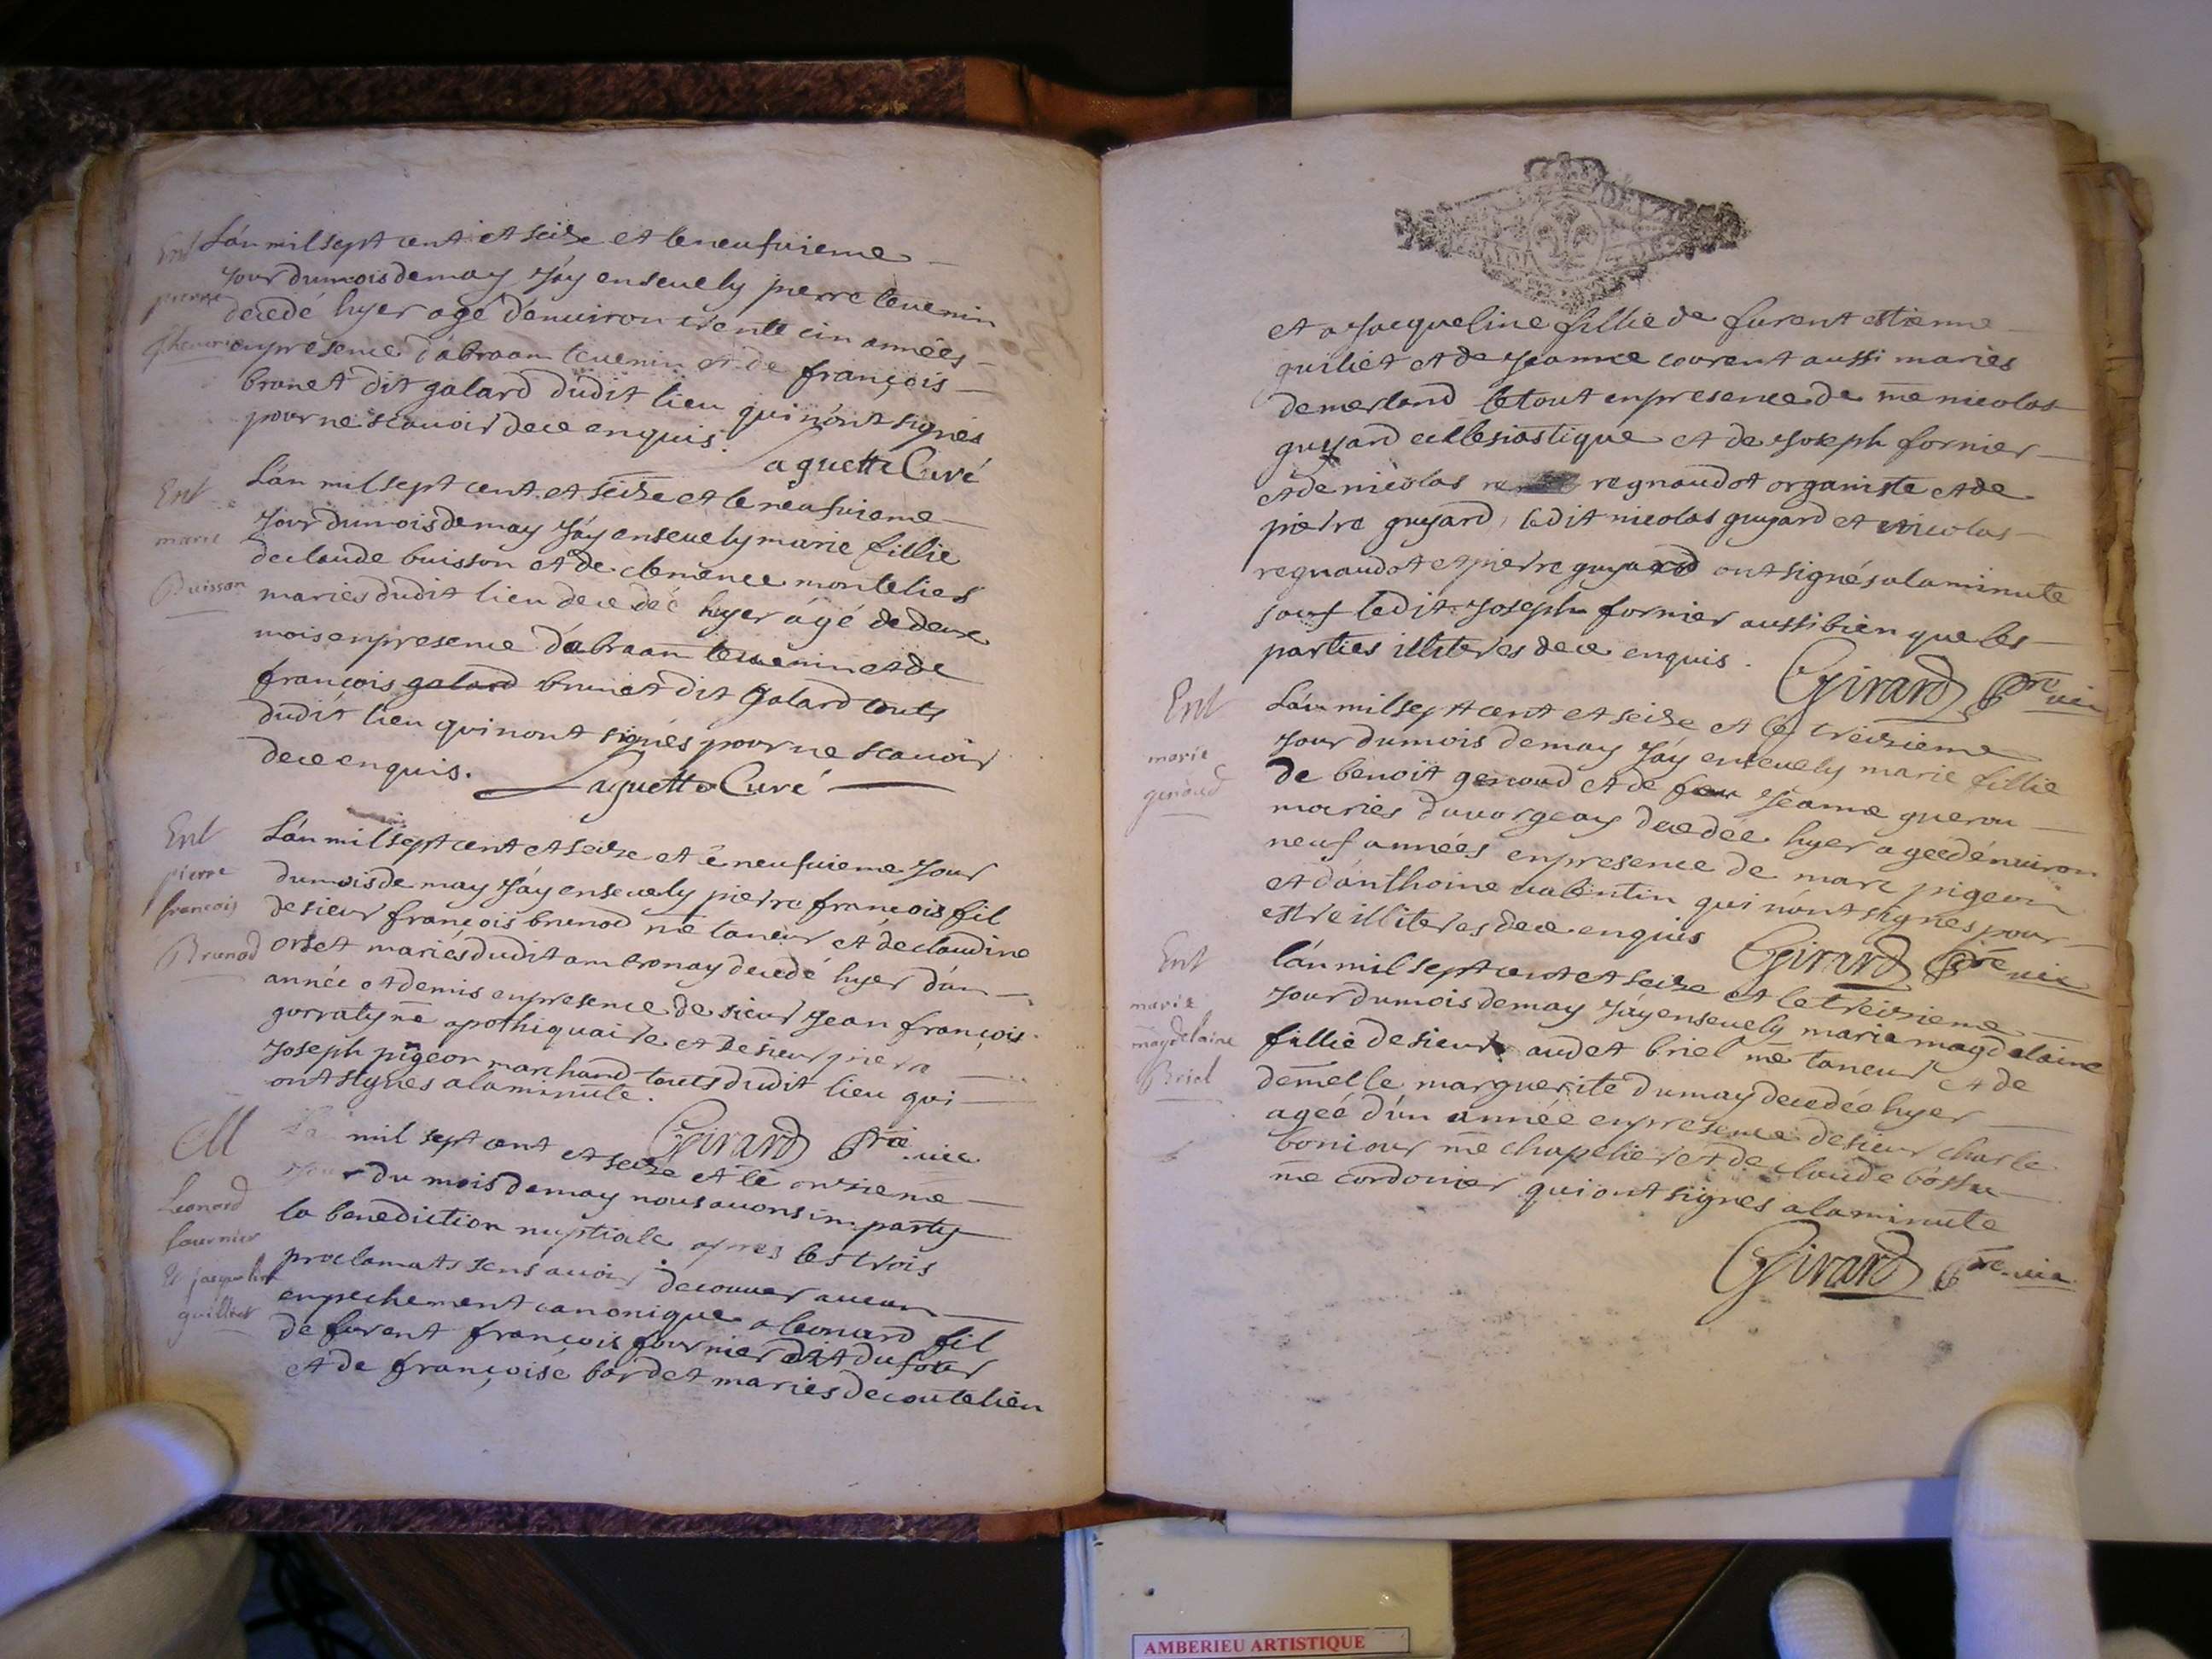 Ent
pierre
thevenin
L'an mil sept cent et seize et le neufvieme
jour du mois de may j'ay ensevely pierre tevenin
decedé hyer agé d'enuiron trente cin années
en presence d'abraam tevenin et de françois
brunet dit galard dudit lieu qui n'ont signés
pour ne scauoir de ce enquis.
Laguette Curé
Ent
marie
Buisson
L'an mil sept cent et seize et le neufvieme
jour du mois de may j'ay ensevely marie fillie
de claude buisson et de clemence montelier
mariés dudit lieu decedée hyer agé de deux
mois en presence d'abraam tevenin et de
françois galard brunet dit galard touts
dudit lieu qui n'ont signés pour ne scauoir
de ce enquis.
Laguette Curé
Ent
pierre
françois
Brunod
L'an mil sept cent et seize et le neufvieme jour
du mois de may j'ay ensevely pierre françois fil
de sieur françois brunod me taneur et de claudine
orset mariés dudit ambronay decedé hyer d'un
année et demis en presence de sieur jean françois
gorraty me apothiquaire et de sieur pierre
joseph pigeon marchand touts dudit lieu qui
ont signés a la minute.
Girard ptre vic
M
Leonard
fournier
et jacqueline
guilliet
L'an mil sept cent et seize et le onzieme
jour du mois de may nous auons imparty
la benediction nuptiale apres les trois
proclamats sens auoir decouuer aucun
enpechement canonique a leonard fil
de furent françois fournier dit dufour
et de françoise bardet mariés de coutelieu
et a jacqueline fillie de furent estienne
guiliet et de jeanne courent aussi mariés
de merland le tout en presence de me nicolas
guyard ecllesiastique et de joseph fornier
et de nicolas regnaudot organiste et de
pierre guyard, ledit nicolas guyard et nicolas
regnaudot et pierre guyard ont signés a la minute
sauf ledit joseph fornier aussi bien que les
parties illiteres de ce enquis.
Girard ptre vic
Ent
marie
genoud
L'an mil sept cent et seize et le treizieme
jour du mois de may j'ay ensevely marie fillie
de benoit genoud et de jeanne guerou
mariés du vorgeay decedée hyer agee d'enuiron
neuf années en presence de marc pigeon
et d'anthoine valentin qui n'ont signés pour
estre illiteres de ce enquis
Girard ptre vic
Ent
marie
magdelaine
Briel
L'an mil sept cent et seize et le treizieme
jour du mois de may j'ay ensevely marie magdelaine
fillie de sieur audet briel me taneur et de
demelle marguerite dumay decedée hyer
ageé d'un année en presence de sieur charle
boniour me chapelier et de claude bossu
me cordonier qui ont signés a la minute
Girard ptre vic
AMBERIEU ARTISTIQUE